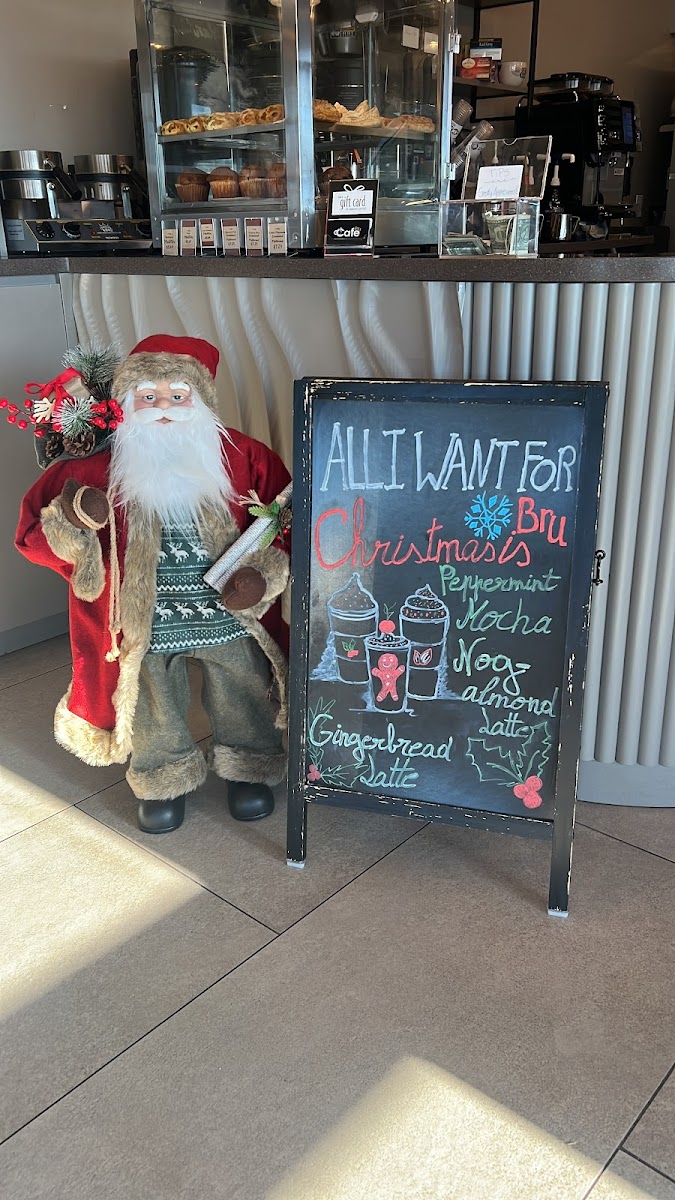 gift card
Café
ALL I WANT FOR
Christmas is Bru
Peppermint
Mocha
Nog-
almond
Latte
Gingerbread
Latte